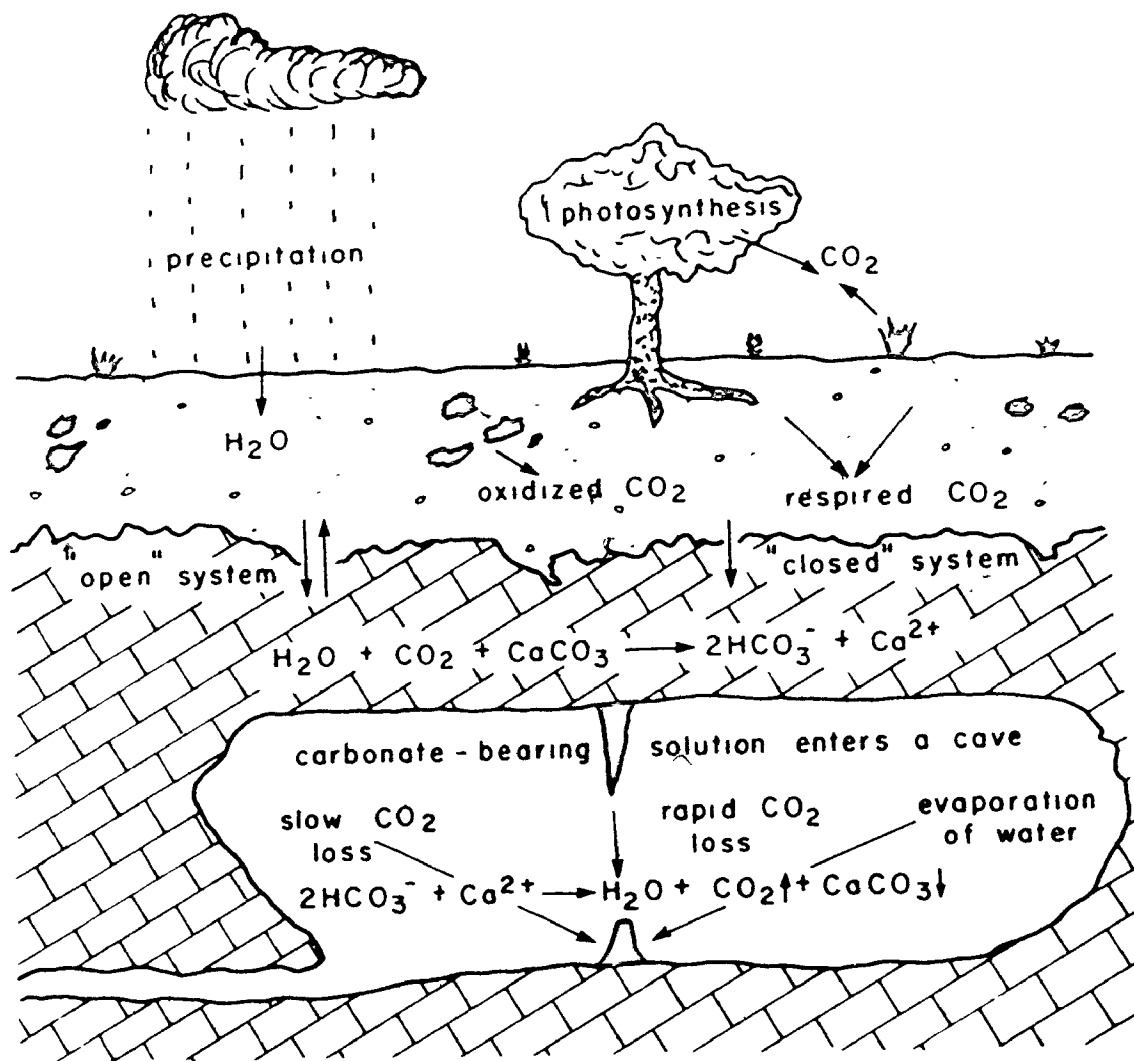 photosynthesis
precipitation
CO₂
H₂O
oxidized CO₂
respired CO₂
"open" system
"closed" system
H₂O + CO₂ + CaCO₃ → 2HCO₃⁻ + Ca²⁺
carbonate-bearing solution enters a cave
slow CO₂
loss
rapid CO₂
loss
evaporation
of water
2HCO₃⁻ + Ca²⁺ → H₂O + CO₂↑ + CaCO₃↓